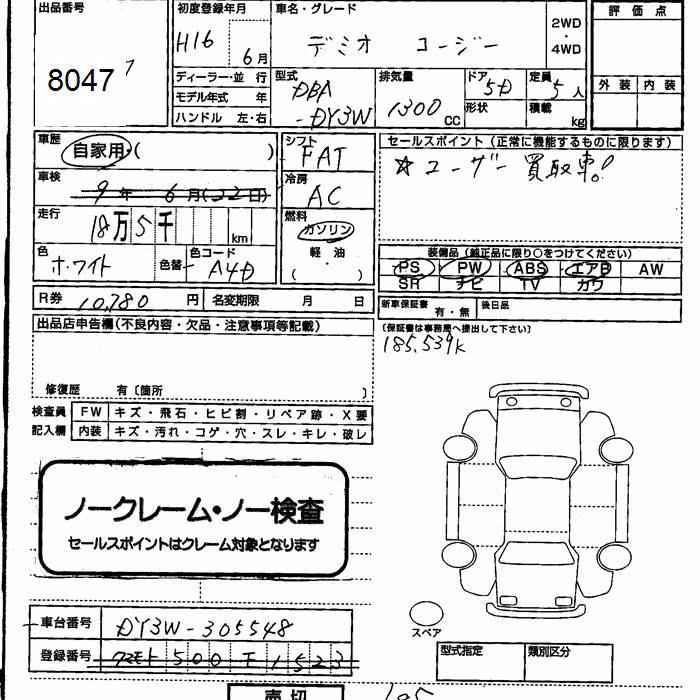 出品番号 初度登録年月 車名・グレード 評価点
8047 7 H16 6月 デミオ コージー 2WD・4WD
外装 内装
ディーラー・並行 型式 排気量 ドア 定員
モデル年式 年 DBA 5D 5人
ハンドル 左・右 -DY3W 1300CC 形状 積載 kg
車歴 自家用・( ) シフト FAT
セールスポイント(正常に機能するものに限ります)
☆ユーザー買取車!
車検 9年 6月(22日) 冷房 AC
走行 18万5千 km 燃料 ガソリン
軽油
・( )
色 ホワイト 色替 色コード A4D
装備品(純正品に限り○をつけてください)
PS PW ABS エアB AW
SR ナビ TV カワ
R券 10,780円 名変期限 月 日
新車保証書 有・無 後日品
出品店申告欄(不良内容・欠品・注意事項等記載)
(保証書は事務局へ提出して下さい)
185,539K
修復歴 有〔箇所 〕
検査員 FW キズ・飛石・ヒビ割・リペア跡・X要
記入欄 内装 キズ・汚れ・コゲ・穴・スレ・キレ・破レ
ノークレーム・ノー検査
セールスポイントはクレーム対象となります
スペア
車台番号 DY3W-305548
登録番号 500 1523
型式指定 類別区分
売切